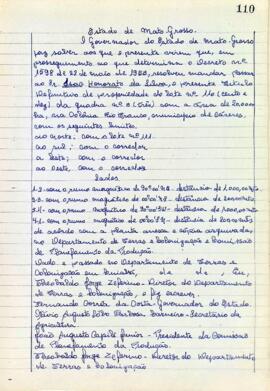 110
Estado de Mato Grosso.
O Governador do Estado de Mato Grosso
faz saber aos que o presente virem que, em
prosseguimento ao que determinou o Decreto nº
1598 de 22 de maio de 1953, resolveu mandar passar
ao Sr João Honorato da Silva, o presente Título
Definitivo de propriedade do lote nº 110 (cento e
dez) da quadra nº 3 (três) com a área de 20,000
ha, na Colônia Rio Branco, município de Cáceres,
com os seguintes limites:
ao norte; com o lote nº 111.
ao sul; com o corredor
a leste; com o corredor
ao oeste; com o corredor
Lados
1-2- com o rumo magnético de
2-3- com o rumo magnético de
3-4- com o rumo magnético de
4-1- com o rumo magnético de
de acordo com a planta anexa e cópia arquivada,
no Departamento de Terras e Colonização e Comissão
de Planejamento da Produção.
Dado e passado no Departamento de Terras e
Colonização em Cuiabá, de de Eu,
Theobaldo Jorge Zeferino - Diretor do Departamento
de Terras e Colonização o fiz escrever.
Fernando Corrêa da Costa - Governador do Estado.
Otávio Augusto Barbosa - Secretário da
Agricultura
João Augusto Capilé Júnior - Presidente da Comissão
de Planejamento da Produção.
Theobaldo Jorge Zeferino - Diretor do Departamento
de Terras e Colonização